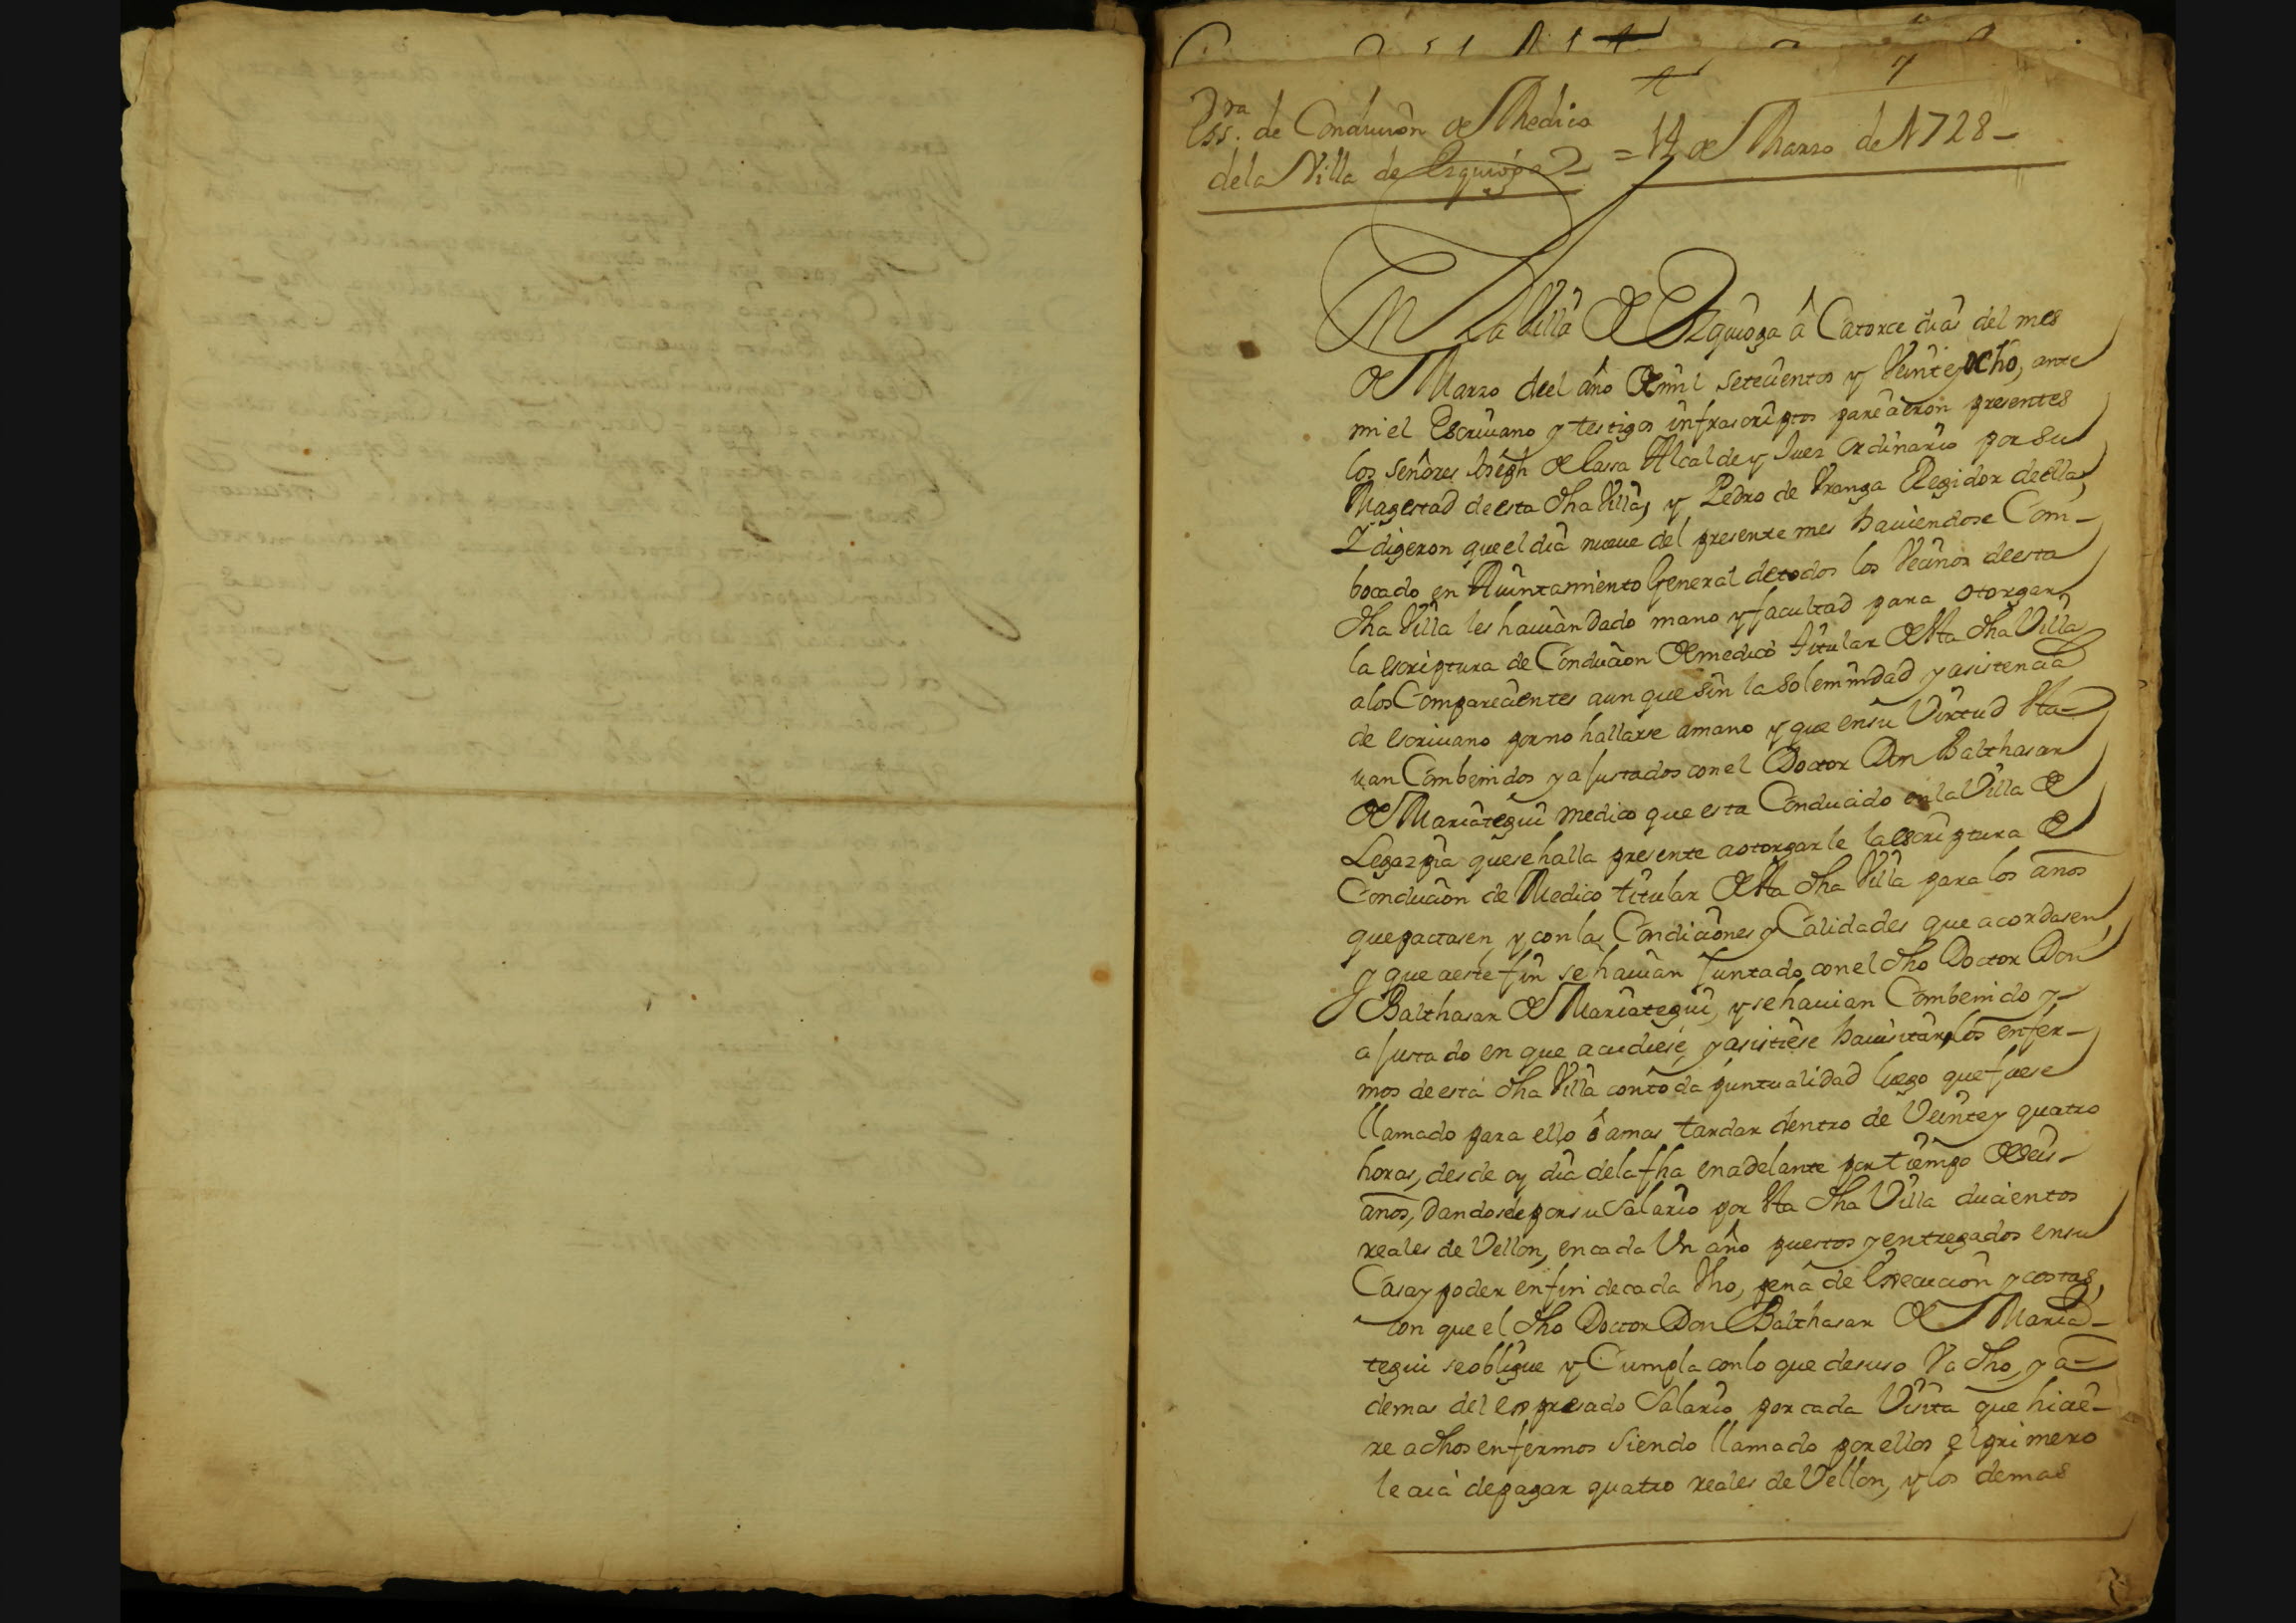 7
Ess.ra de Conducion de Medico
de la Villa de Ezquioga = 14 de Marzo de 1728 -
En La Villa de Ezquioga â Catorce dias del mes
de Marzo deel año de mil setecientos y Veinte y ocho, ante
mi el Escriuano y testigos infrascriptos parecieron presentes
los señores de Cassa Alcalde y Juez ordinario por su
Magestad de esta dha Villa, y Pedro de Vranga Regidor deella,
Y digeron que el dia nueue del presente mes hauiendose Com-
bocado en Auintamiento General de todos los Vecinos de esta
dha Villa les hauian dado mano y facultad para otorgar
la escriptura de Conducion de medico titular de sta dha Villa
a los Comparecientes aun que sin la solemnidad y asistencia
de escriuano por no hallarse amano y que en su Virtud sta-
uan Combenidos y ajustados con el Doctor Don Balthasar
de Mariategui medico que esta Conducido en la Villa de
Legazpia que se halla presente a otorgarle la escriptura de
Conducion de Medico titular de sta dha Villa para los años
que pactasen, y con las Condiciones y Calidades que acordasen,
y que a este fin se hauian Juntado con el dho Doctor Don
Balthasar de Mariategui, y se hauian Combenido y
ajustado en que acudiese, y asistiese hauisitar los enfer-
mos de esta dha Villa con toda puntualidad luego que fuese
llamado para ello ô a mas tardar dentro de Veinte y quatro
horas, desde oy dia de la fha en adelante por tiempo de seis
años, dandosele por su Salario por sta dha Villa ducientos
reales de Vellon, en cada Vn año puestos y entregados en su
Casa y poder en fin de cada Vno, pena de Execucion y costas,
con que el dho Doctor Don Balthasar de Maria-
tegui se obligue y Cumpla con lo que de suso Va dho, y a-
demas del expresado Salario por cada Visita que hicie-
re a dhos enfermos siendo llamado por ellos el primero
le aia de pagar quatro reales de Vellon, y los demas